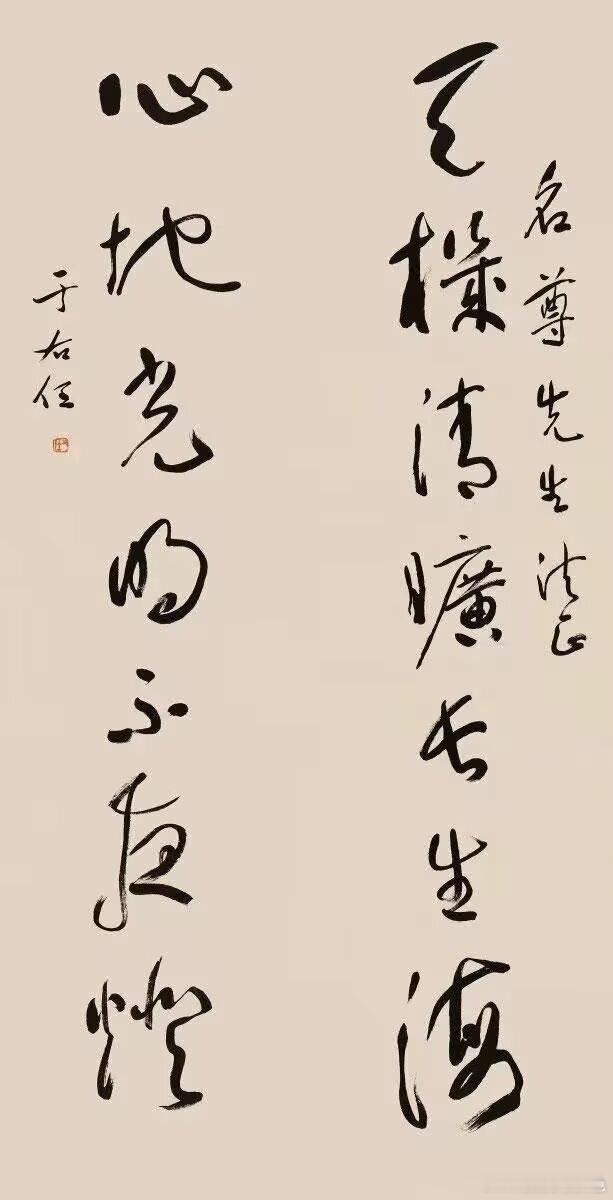 名尊先生法正
天機清曠長生海
心地光明不夜燈
于右任